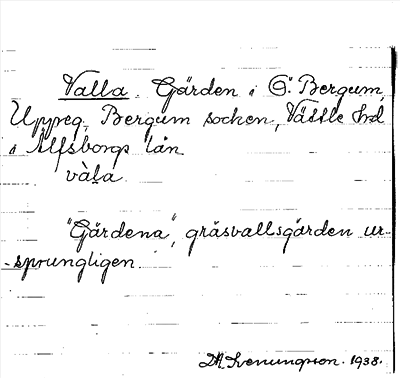 Valla. Gärden i Ö. Bergum,
Uppeg. Bergum socken, Vättle hd
i Älfsborgs län
vàla
"Gärdena", gräsvallsgärden ur-
-sprungligen.
Svenungson. 1938.